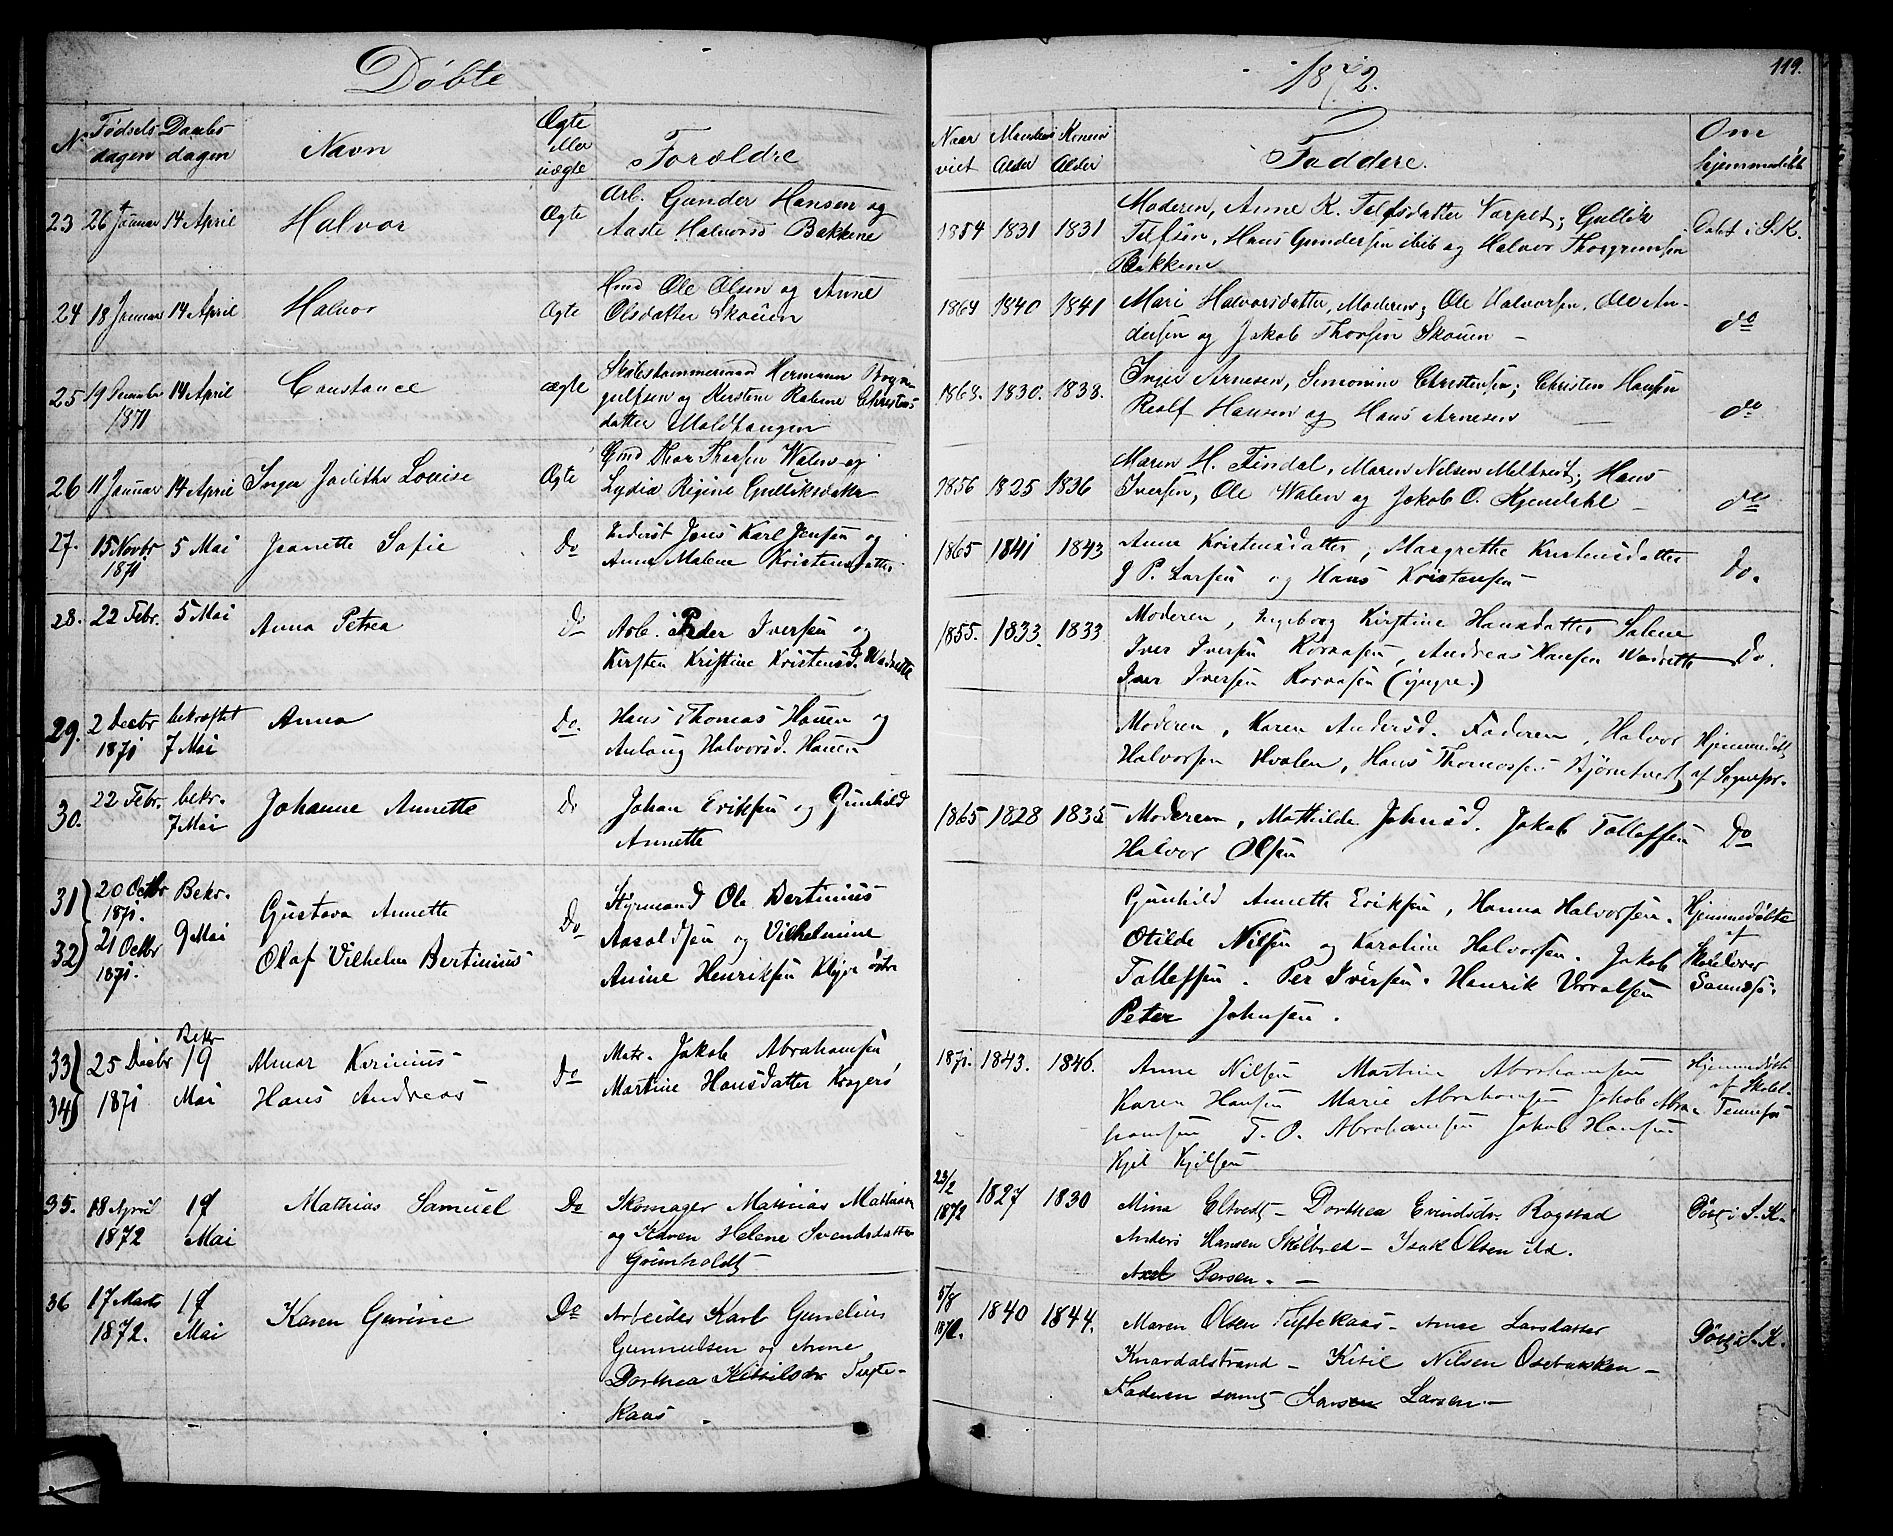 Døbte
1872.
119.
No Fødsels dagen Daabs dagen Navn Ægte eller uægte Forældre
Naar viet Mandens Alder Konens Alder Faddere. Om hjemmedøbt
23 26 Januar 14 April Halvor Ægte Arb. Gunder Hansen og
Aaste Halvorsd Bakkene
1854 1831 1831 Moderen, Anne K. Tolfsdatter Vorpet; Gullik
Tolfsen, Hans Gundersen ibid og Halvor Thorgrimsen
Bakkene
Døbt i S. K.
24 18 Januar 14 April Halvor Ægte Gmd Ole Olsen og Anne
Olsdatter Skouen
1864 1840 1841 Mari Halvorsdatter, Moderen; Ole Halvorsen, Ole An-
dersen og Jakob Thorsen Skouen –
do
25 19 December 14 April Constance ægte Skibstømmermand Hermann
1871
gulfsen og Kerstene Kathrine Christens
datter Moldhaugen
1863. 1830. 1838. Inger Arnesen, Simonine Christensen; Christen Hansen
Realf Hansen og Hans Arnesen –
do
26 11 Januar 14 April Inga Judithe Louise Ægte Gmd Thor Thorsen Walen og
Lydia Regine Gulliksdatter
1856 1825 1836 Maren H. Findal, Maren Nilsen Meltveit; Hans
Iversen, Ole Walen og Jakob O. Kjendahl –
do
27. 15 Novbr 5 Mai Jeanette Sofie Do Inderst Jens Karl Jensen og
1871
Anne Malene Kristensdatter
1865 1841 1843 Anne Kristensdatter, Margrethe Kristensdatter
J P. Larsen og Hans Kristensen –
Do.
28. 22 Febr. 5 Mai Anna Petrea Do Arb. Peder Iversen og
Kirsten Kristine Kristensd. Wadrette
1855. 1833. 1833. Moderen, Ingeborg Kirstine Hansdatter Salene
Iver Iversen Rørvasen, Andreas Hansen Wadrette
Iver Iversen Rorvasen (yngre.)
Do.
29. 2 Decbr bekræftet Anna Do. Hans Thomas' Hauen og
1871 7 Mai Anlaug Halvorsd. Hauen
Moderen, Karen Andersd. Faderen, Halvor
Halvorsen Hvalen, Hans Thomassen Bjørntvedt
Hjemmedøbt
af Sognepr.
30. 22 Febr. bekr. Johanne Annette Do Johan Eriksen og Gunhild
7 Mai Annette
1865 1828 1835 Moderen, Mathilde Johnsd. Jakob Tollefsen
Halvor Olsen
Do
31) 20 Octbr Bekr. Gustava Annette Do Styrmand Ole Bertinius
1871.
32) 21 Octbr 9 Mai Olaf Vilhelm Bertinius Aasoldsen og Vilhelmine
1871. Anine Henriksen Klyve østre
Gunhild Annette Eriksen, Hanna Halvorsen.
Otilde Nilsen og Karoline Halvorsen. Jakob
Tollefsen. Per Iversen. Henrik
Peter Johnsen.
Hjemmedøbte
af
Skolelærer
33) 25 Decbr Bekr 19 Kvinius Do Matr. Jakob Abrahamsen
34) 1871 Mai Hans Andreas Martine Hansdatter Kragerø
1871. 1843. 1846. Anne Nilsen Martine Abrahamsen
Karen Hansen Marie Abrahamsen Jakob Abra-
hamsen T. O. Abrahamsen Jakob Hansen
Kjel Kjelsen
Hjemmedøbte
af Skolel.
35. 18 April 19 Mathias Samuel Do Skomager Mathias Mathiasen
1872 Mai og Karen Helene Svendsdatter
Grimholdt
23/2 1872 1827 1830 Mina Eltvedt – Dorthea Evindsdr. Rogstad
Anders Hansen Skilbred – Isak Olsen ibd.
Axel Persen. –
Døbt i S. K.
36 17 Marts 19 Karen Gurine Do Arbeider Karl Gunelius
1872. Mai Gunnulsen og Anne
Dorthea Kittilsdr Tufte-
kaas –
5/8 1870. 1840 1844. Maren Olsen Tuftekaas – Anne Larsdatter
Knardalstrand – Kitil Nilsen Osebakken –
Faderen samt Larsen Larsen. –
Døbt i S. K.